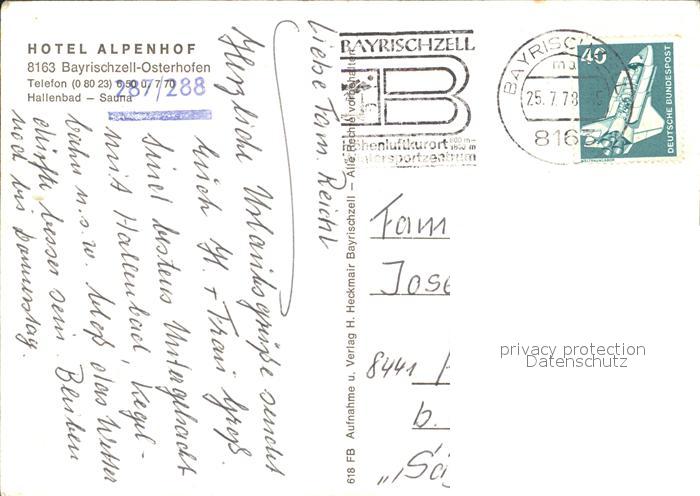 HOTEL ALPENHOF
8163 Bayrischzell-Osterhofen
Telefon (0 80 23)
Hallenbad – Sauna
287/288
Liebe Fam. Reichl
Herzliche Urlaubsgrüße sendet
Euch H. + Frau Groß.
Sind bestens Untergebracht
mit Hallenbad, Kegel-
bahn u.s.w. bloß das Wetter
dürfte besser sein. Bleiben
noch bis Donnerstag.
618 FB Aufnahme u. Verlag H. Heckmair Bayrischzell – Alle Rechte vorbehalten
BAYRISCHZELL
B
henluftkurort
tersportzentrum
BAYRISCH
25.7.78
8163
40
DEUTSCHE BUNDESPOST
Fam
Jose
8441
b.
„Sä
privacy protection
Datenschutz